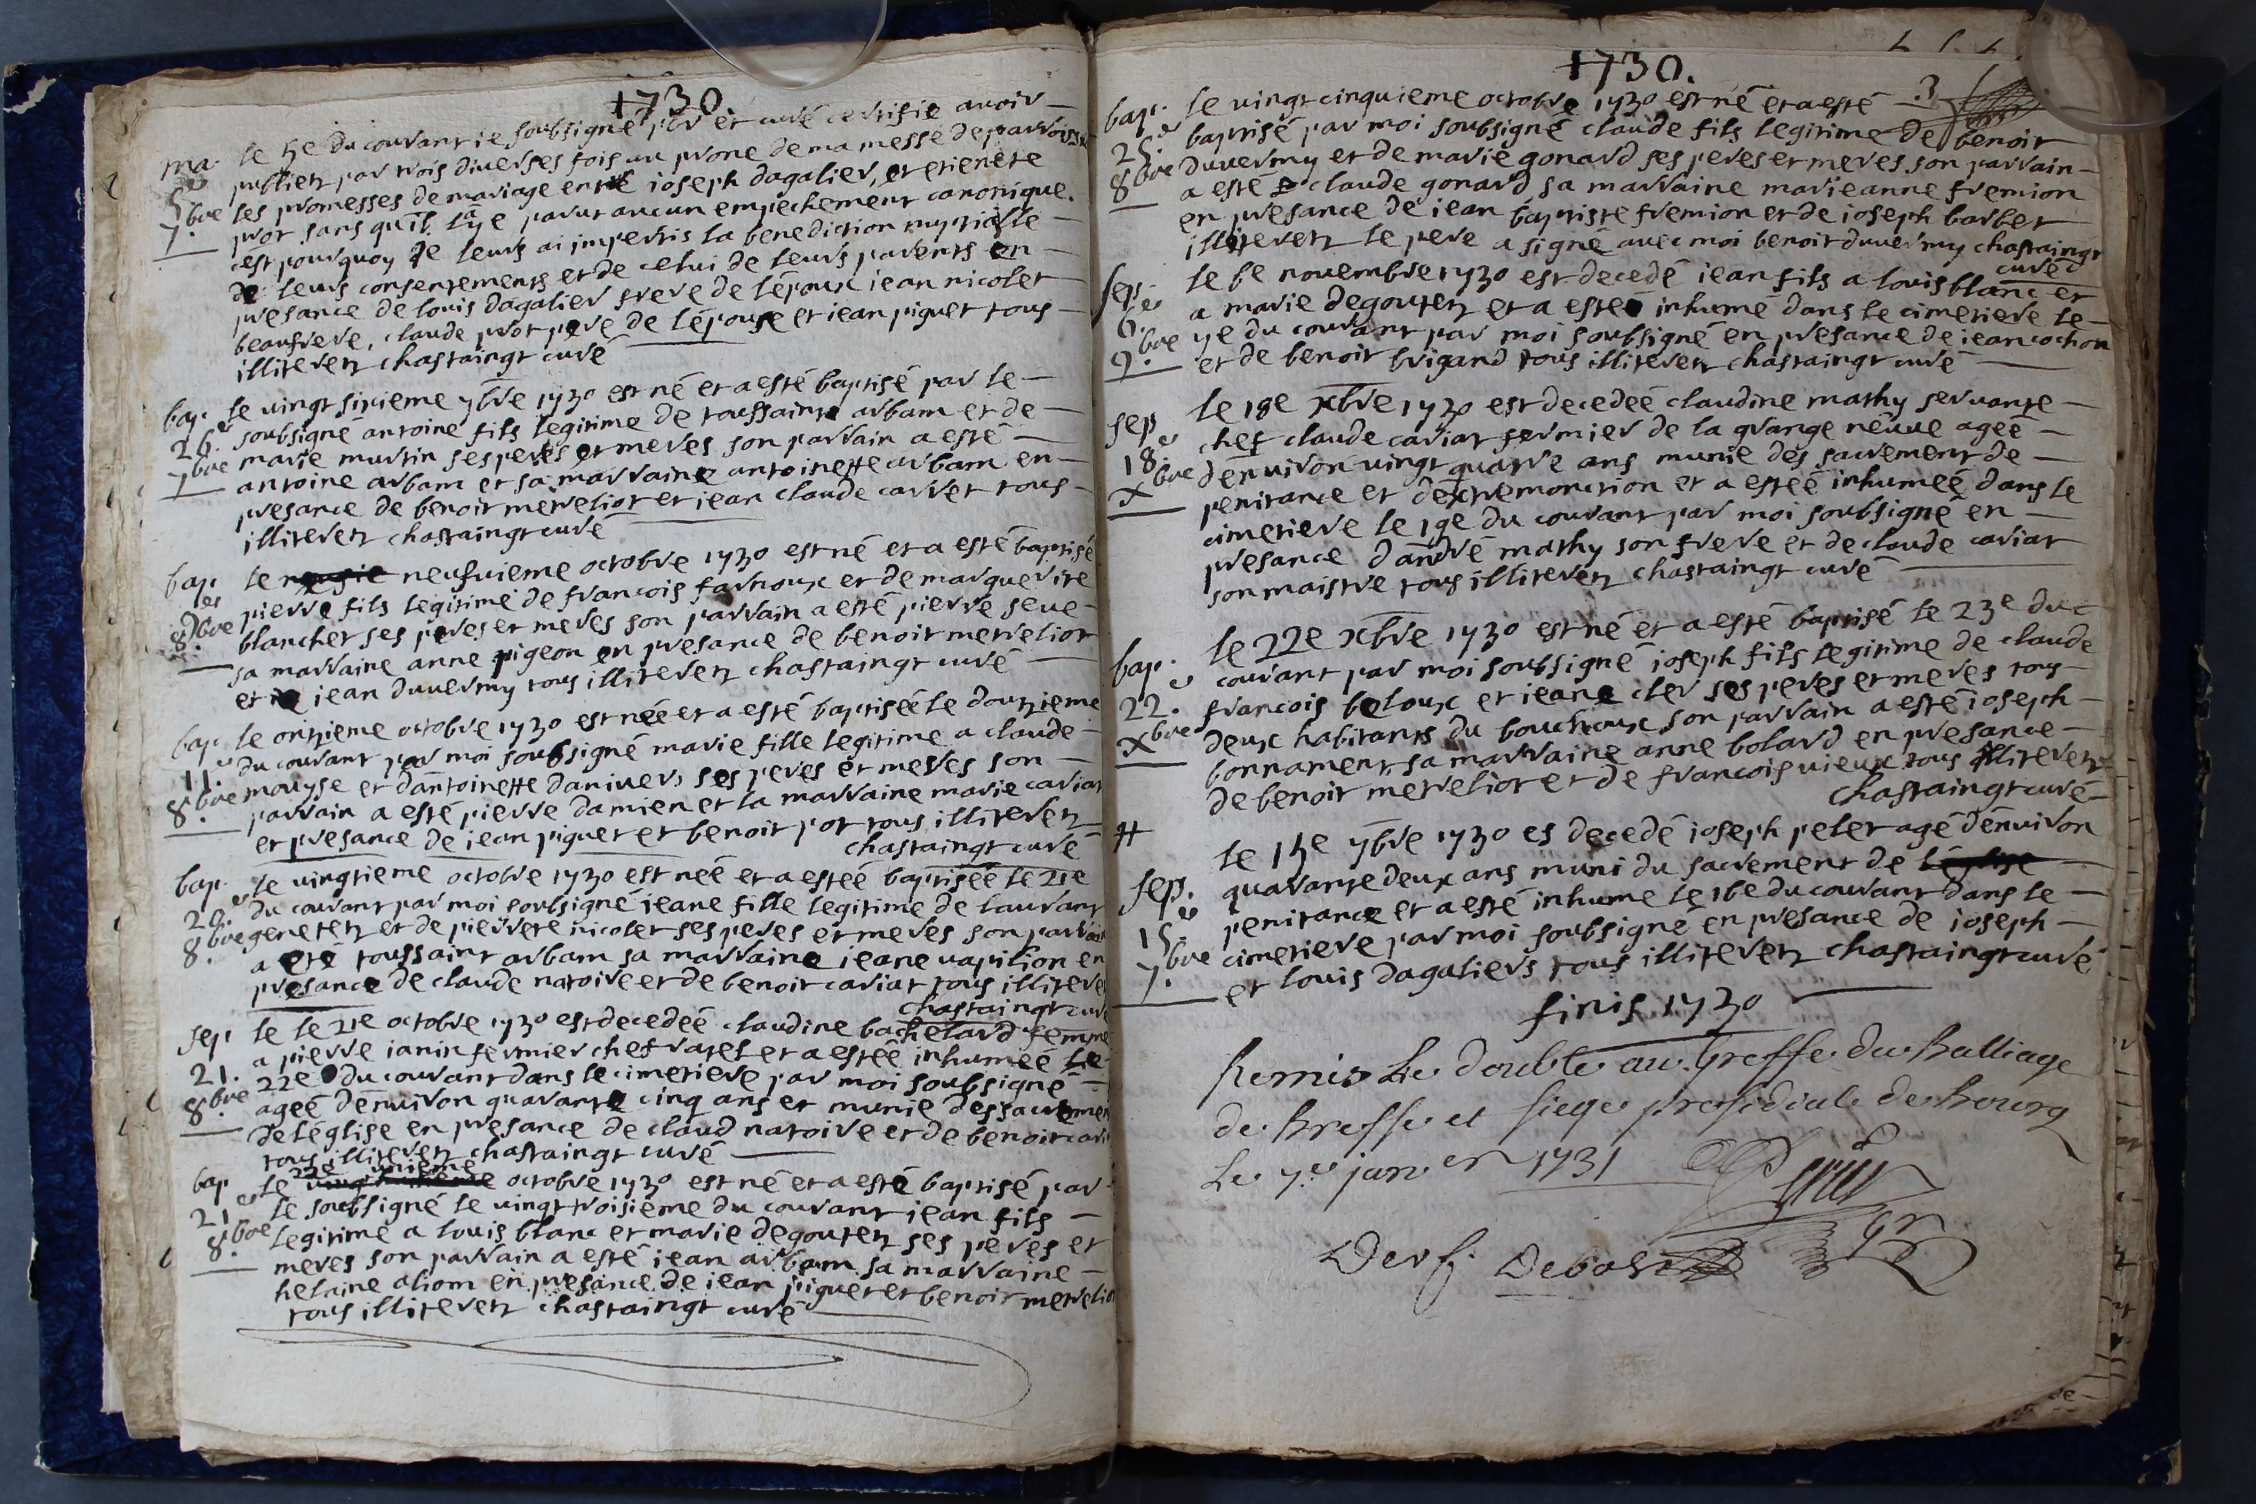 1730.
ma. le 5e du courant ie soubsigné pbr et curé certifie avoir
5e publietz par trois diverses fois au prone de ma messe de parroisse
7.bre les promesses de mariage entre ioseph dagalier, et etienete
prot sans qu'il l'aye parut aucun empechement canonique.
cest pourquoy je leurs ai impertis la benediction nuptialle
de leurs consentements et de celui de leurs parents en
presance de louis dagalier frere de lépoux iean nicolet
beaufrere, claude prot pere de lépouse et iean piguet tous
illiteretz chastaingt curé
bap. le vingt sixieme 7bre 1730 est né et a esté baptisé par le
26.e soubsigné antoine fils legitime de toussainte arbam et de
7bre marie murtin ses peres et meres son parrain a esté
antoine arbam et sa marraine antoinette arbam en
presance de benoit mervelior et iean claude carret tous
illiteretz chastaingt curé
bap. le neufvieme octobre 1730 est né et a esté baptisé
9e pierre fils legitime de francois farnoux et de marguerite
8.bre blanchet ses peres et meres son parrain a esté pierre seve
sa marraine anne pigeon en presance de benoit mervelior
et iean duvermy tous illiteretz chastaingt curé
bap. le onzieme octobre 1730 est née et a esté baptiséé le douzieme
11.e du courant par moi soubsigné marie fille legitime a claude
8.bre moryse et dantoinette danivers ses peres et meres son
parrain a esté pierre damien et la marraine marie cariat
et presance de iean piguet et benoit pot tous illiteretz
chastaingt curé
bap. le vingtieme octobre 1730 est néé et a estéé baptiséé le 21e
20.e du courant par moi soubsigné ieane fille legitime de laurant
8.bre genetetz et de pierrete nicolet ses peres et meres son parrain
a eté toussaint arbam sa marraine ieane vapilion en
presance de claude natoire et de benoit cariat tous illiteretz
chastaingt curé
sep. le le 21e octobre 1730 est decedéé claudine bachelard femme
21. a pierre ianin fermier chef rapes et a estéé inhuméé le
8.bre 22e du courant dans le cimetiere par moi soubsigné
ageé denviron quarante cinq ans et munie des sacrements
de léglise en presance de claud natoire et de benoit cariat
tous illiteretz chastaingt curé
22e unieme
bap. le octobre 1730 est né et a esté baptisé par
21e le soubsigné le vingt troisieme du courant iean fils
8.bre legitime a louis blanc et marie degoutetz ses peres et
meres son parrain a esté iean arbam sa marraine
helaine aliom en presance de iean piguet et benoir mervelior
tous illiteretz chastaingt curé
1730.
3
bap. le vingt cinquieme octobre 1730 est né et a esté
25.e baptisé par moi soubsigné claude fils legitime de benoit
8bre duvermy et de marie gonard ses peres et meres son parrain
a esté claude gonard sa marraine marieanne fremion
en presance de iean baptiste fremion et de ioseph barbet
illiteretz le pere a signé avec moi benoit duvermy chastaingt
curé
sep. le 6e novembre 1730 est decedé iean fils a louis blanc et
6.e a marie degoutetz et a esté inhumé dans le cimetiere le
9.bre 7e du courant par moi soubsigné en presance de iean cochon
et de benoit brigand tous illiteretz chastaingt curé
sep. le 18e xbre 1730 est decedéé claudine mathy servante
18.e chef claude cariat fermier de la grange neuve ageé
xbre denviron vingt quatre ans munie des sacrement de
penitance et dextremonction et a estéé inhuméé dans le
cimetiere le 19e du courant par moi soubsigné en
presance dandré mathy son frere et de claude cariat
son maistre tous illiteretz chastaingt curé
bap. le 22e xbre 1730 est né et a esté baptisé le 23e du
22.e courant par moi soubsigné ioseph fils legitime de claude
xbre francois beloux et ieane cler ses peres et meres tous
deux habitants du bouchoux son parrain a esté ioseph
bonnament, sa marraine anne bolard en presance
de benoit mervelior et de francois vieux tous illiteretz
chastaingt curé
#
sep. le 15e 7bre 1730 es decedé ioseph pelet agé denviron
15e quarante deux ans muni du sacrement de
7.bre penitance et a esté inhume le 16e du courant dans le
cimetiere par moi soubsigné en presance de ioseph
et louis dagaliers tous illiteretz chastaingt curé
finis 1730
Remis Le double au greffe du Balliage
de Bresse et siege presidial de Bourg
Le 7e janer 1731